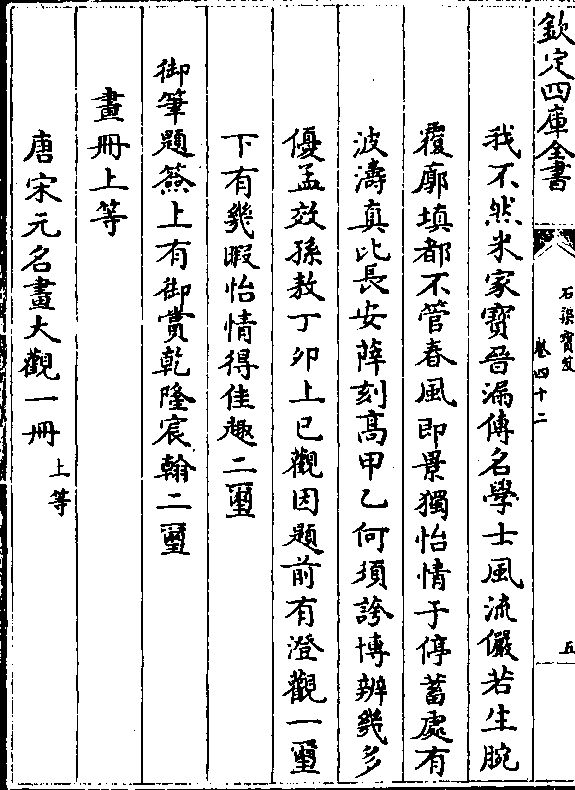 欽定四庫全書
石渠寶笈
卷四十二
五
我不然米家寶晉漏傳名學士風流儼若生腕
覆廓填都不管春風即景獨怡情于停蓄處有
波濤真比長安薛刻高甲乙何須誇博辨幾多
優孟效孫敖丁卯上巳觀因題前有澄觀一璽
下有幾暇怡情得佳趣二璽
御筆題簽上有御賞乾隆宸翰二璽
畫冊上等
唐宋元名畫大觀一冊上等